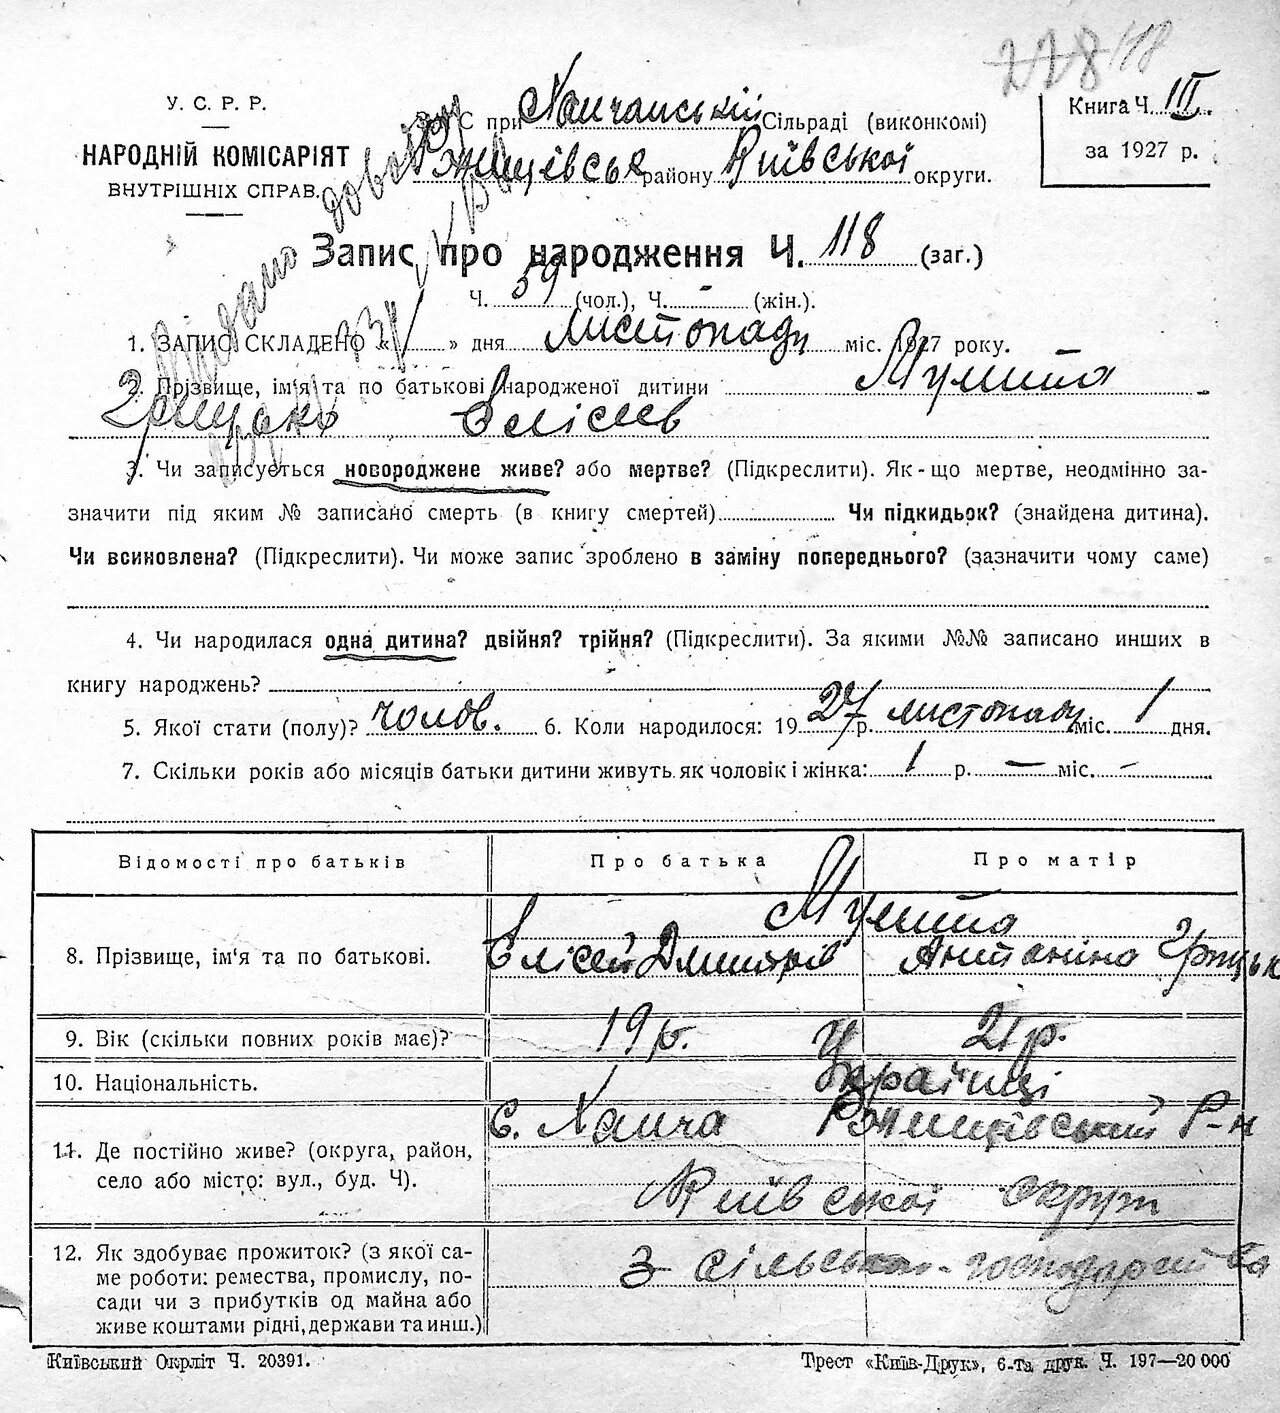 228 118
У. С. Р. Р.
НАРОДНІЙ КОМІСАРІЯТ
ВНУТРІШНІХ СПРАВ.
С при Ханчанській Сільраді (виконкомі)
Ржищівськ району Київської округи.
Книга Ч. III
за 1927 р.
Видано довідку
Запис про народження Ч. 118 (заг.)
Ч. 59 (чол.), Ч. - (жін.).
1. ЗАПИС СКЛАДЕНО « 1 » дня листопаду міс. 1927 року.
2. Прізвище, ім'я та по батькові народженої дитини Мумита
Грицько Елісеєв
3. Чи записується новороджене живе? або мертве? (Підкреслити). Як-що мертве, неодмінно за-
значити під яким № записано смерть (в книгу смертей) Чи підкидьок? (знайдена дитина).
Чи всиновлена? (Підкреслити). Чи може запис зроблено в заміну попереднього? (зазначити чому саме)
4. Чи народилася одна дитина? двійня? трійня? (Підкреслити). За якими №№ записано инших в
книгу народжень?
5. Якої стати (полу)? чолов. 6. Коли народилося: 1927 р. листопаду міс. 1 дня.
7. Скільки років або місяців батьки дитини живуть як чоловік і жінка: 1 р. — міс. -
Відомості про батьків Про батька Про матір
Мумита
8. Прізвище, ім'я та по батькові. Елісей Дмитрів Антоніна Грицьк
9. Вік (скільки повних років має)? 19 р. 21 р.
10. Національність. Українці
11. Де постійно живе? (округа, район,
село або місто: вул., буд. Ч).
с. Ханча Ржищівський Р-н
Київської округи
12. Як здобуває прожиток? (з якої са-
ме роботи: ремества, промислу, по-
сади чи з прибутків од майна або
живе коштами рідні, держави та инш.)
З сільсько-господарства
Київський Окрліт Ч. 20391.
Трест «Київ-Друк», 6-та друк. Ч. 197—20 000